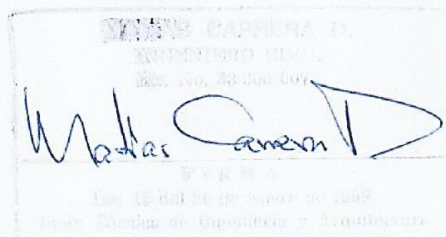 MATIAS CARRERA D.
INGENIERO CIVIL
Lic. No.
Matías Carrera D
FIRMA
Ley 15 del 26 de enero de 1959
Junta Técnica de Ingeniería y Arquitectura